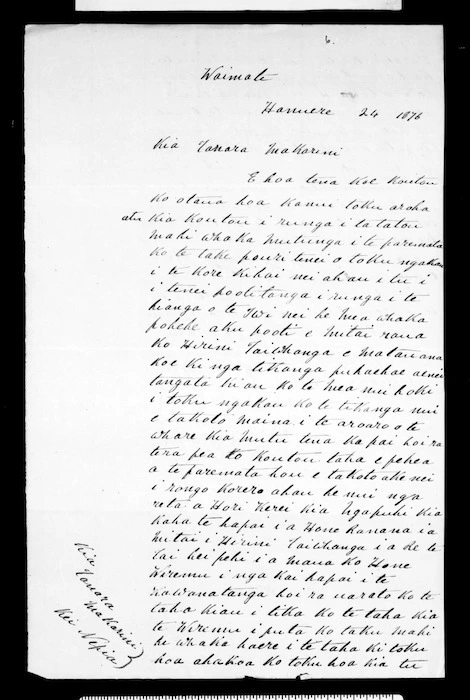 6.
Waimate
Hanuere 24 1876
Kia Tanara Makarini
E hoa tena koe koutou
ko otaua hoa kanui toku aroha
atu kia koutou i runga i ta tatou
mahi whaka mutunga i te paremata
ko te take pouri tenei o toku ngakau
i te kore kihai nei ahau i tu i
i tenei pootitanga i runga i te
hianga o te Iwi nei he mea whaka
pohehe aku pooti e Mitai raua
ko Hirini Taiwhanga e matau ana
koe ki nga tikanga puhaehae aenei
tangata ki au ko te mea nui hoki
i toku ngakau ko te tikanga nui
e takoto maina i te aroaro o te
whare kia mutu tena ka pai hoi ra
tera pea ko koutou taha e pehea
a te paremata hou e takoto ake nei
i rongo korero ahau he nui nga
reta a Hori Kerei kia Ngapuhi kia
kaha te hapai i a Hone Ranana i a
Mitai i Hirini Taiwhanga i a Re te
Tai hei pehi i a maua ko Hone
Wiremu i nga kai hapai i te
Kawanatanga hoi ra na rato ko te
taha kiau i tika ko te taha kia
te Wiremu i puta ko taku mahi
he whaka haere i te taha ki toku
hoa ahakoa ko toku hoa kia tu
Kia
Tanara
Makarini
Kei Nepia